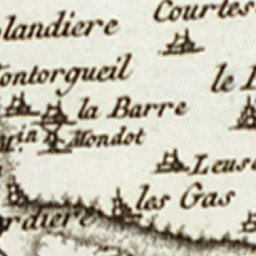 Courtes
landiere
ontorgueil
le
la Barre
in Mondot
Leus
les Gas
rdiere